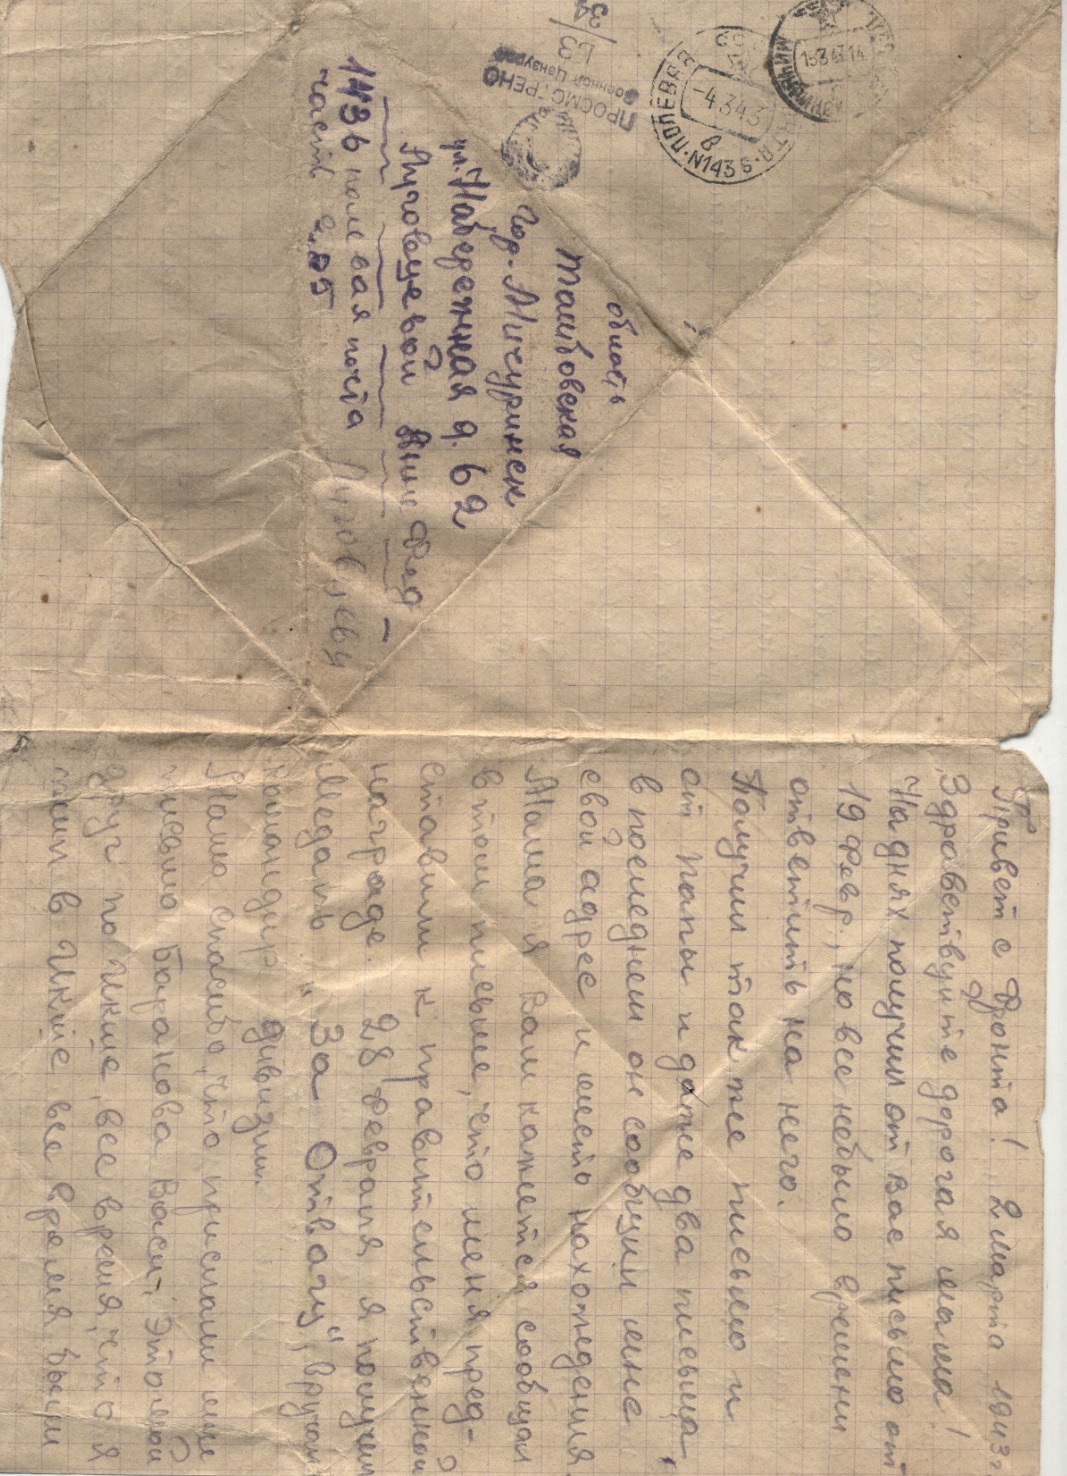 область
Тамбовская
гор. Мичуринск
ул. Набережная д. 62
Луговцевой Анне Фед
1436 полевая почта
часть 205 Луговцеву
ПРОСМОТРЕНО
Военной Цензурой
-4.3.43
8
ПОЛЕВАЯ
N1436
15.3.43.14
Привет с фронта! 2 марта 1943г
Здравствуйте дорогая мама!
На днях получил от вас письмо от
19 февр., но все небыло времени
ответить на него.
Получил также письмо и
от папы и даже два письма,
в последнем он сообщил мне
свой адрес и место нахождения.
Мама я Вам кажется сообщал
в том письме, что меня пред-
ставили к правительственной
награде. 28 февраля я получил
Медаль "За Отвагу", вручал
командир дивизии.
Мамо спасибо, что прислали мне
письмо Баранова Васи, это мой
друг по Икше, все время, что я
был в Икше, все время были